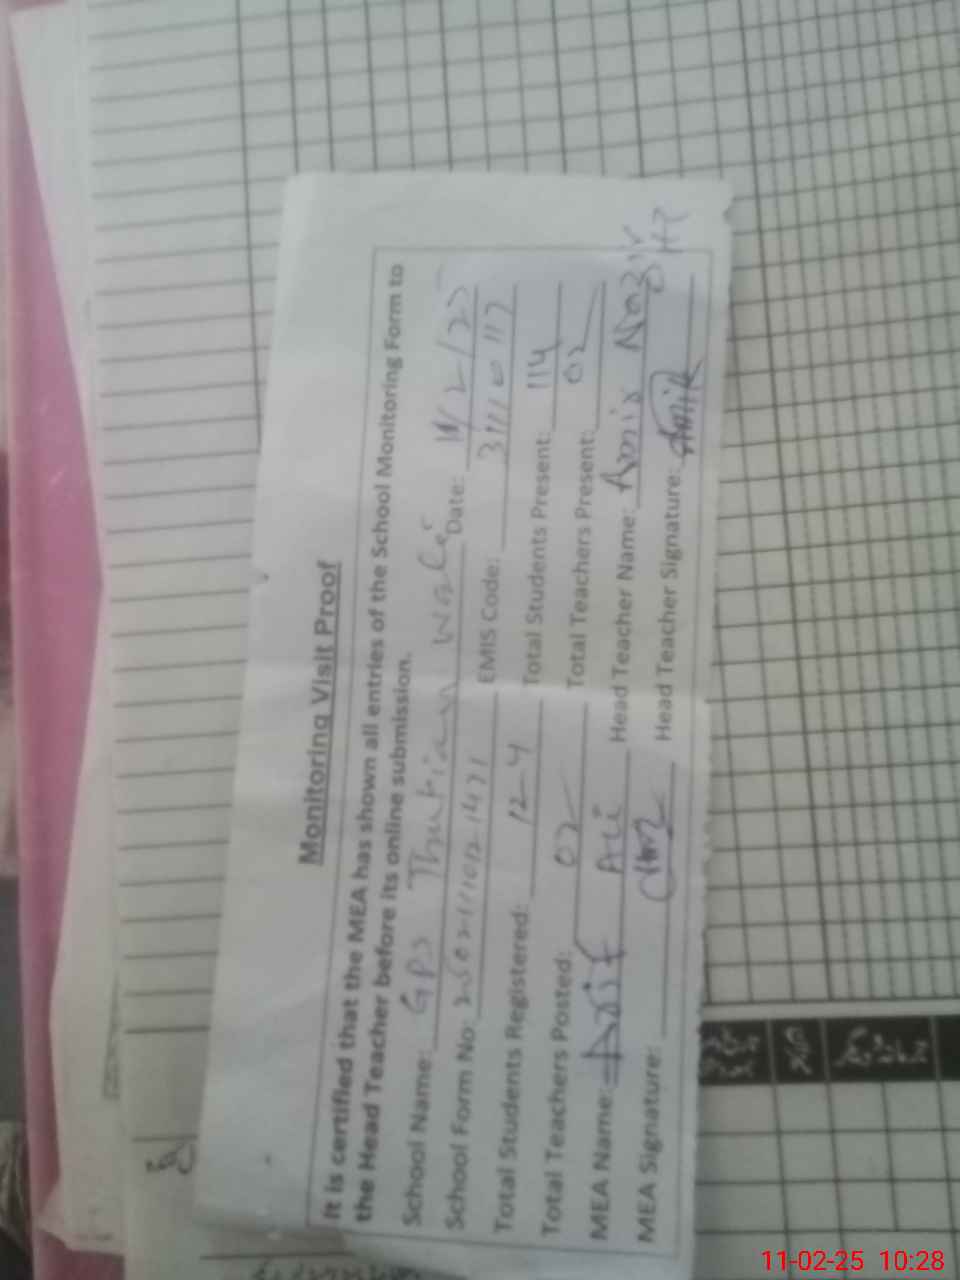 Monitoring Visit Proof
It is certified that the MEA has shown all entries of the School Monitoring Form to
the Head Teacher before its online submission.
School Name: GPS Thutian Wali Date: 11/2/25
School Form No: EMIS Code: 37110117
Total Students Registered: 124 Total Students Present: 114
Total Teachers Posted: 02 Total Teachers Present: 02
MEA Name: Asif Ali Head Teacher Name: Amir Nazir
MEA Signature: Head Teacher Signature: Amir
11-02-25 10:28